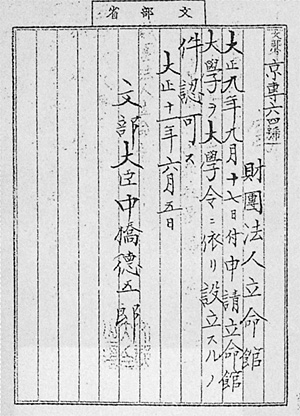 文部省
京專六四號
財團法人立命館
大正九年九月十七日付申請立命館
大學ヲ大學令ニ依リ設立スルノ
件認可ス
大正十一年六月五日
文部大臣中橋德五郎